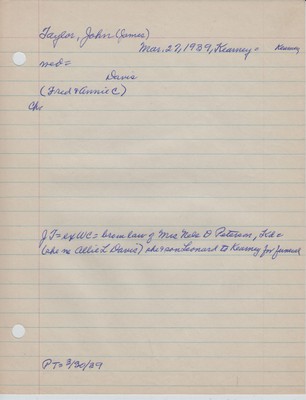 Taylor, John (Amos)
Mar. 27, 1939, Kearney = Kearney
m =
Davis
(Fred & Annie C)
Ch
JT = ex WC = bro in law of Mrs Nels D Peterson, Kd =
(she nee Allie L Davis) she & son Leonard to Kearney for funeral
PT = 3/30/39